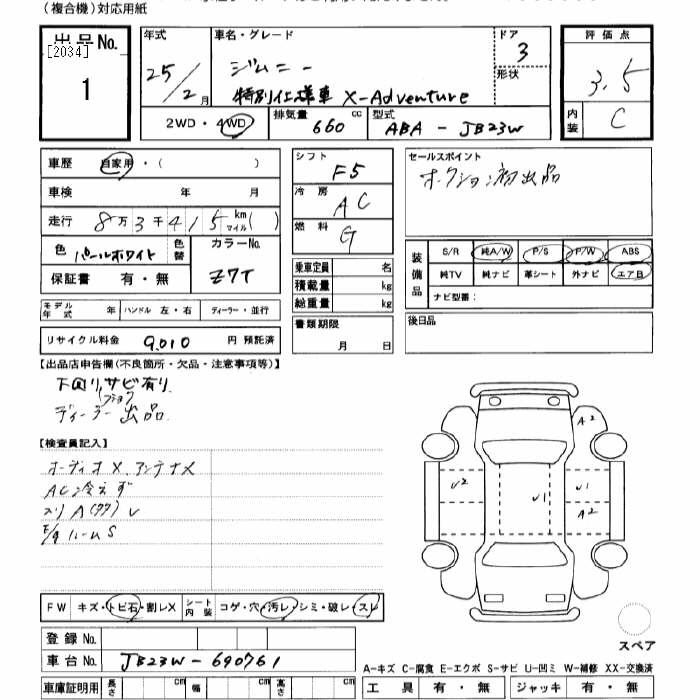 (複合機)対応用紙
出品No. [2034] 1
年式 25/2月
車名・グレード ジムニー
特別仕様車 X-Adventure
ドア 3
形状
評価点 3.5
内装 C
2WD・4WD 排気量 660 cc 型式 ABA - JB23W
車歴 自家用・( )
車検 年 月
走行 8万3千415 km マイル ( )
色 パールホワイト 色替 カラーNo. Z7T
保証書 有・無
モデル年式 年 ハンドル 左・右 ディーラー・並行
リサイクル料金 9,010 円 預託済
シフト F5
冷房 AC
燃料 G
乗車定員 名
積載量 kg
総重量 kg
書類期限
月 日
セールスポイント
オークション初出品
装備品 S/R 純A/W P/S P/W ABS
純TV 純ナビ 革シート 外ナビ エアB
ナビ型番:
後日品
【出品店申告欄(不良箇所・欠品・注意事項等)】
下回りサビ有り
ディーラー出品
【検査員記入】
オーディオX、アンテナX
AC冷えず
E/gルームS
FW キズ・トビ石・割レX シート内装 コゲ・穴・汚レ・シミ・破レ・スレ
登録No.
車台No. JB23W-690761
車庫証明用 長さ cm 幅 cm 高さ cm
A2
U2 U1 U1
A2
スペア
A-キズ C-腐食 E-エクボ S-サビ U-凹ミ W-補修 XX-交換済
工具 有・無 ジャッキ 有・無